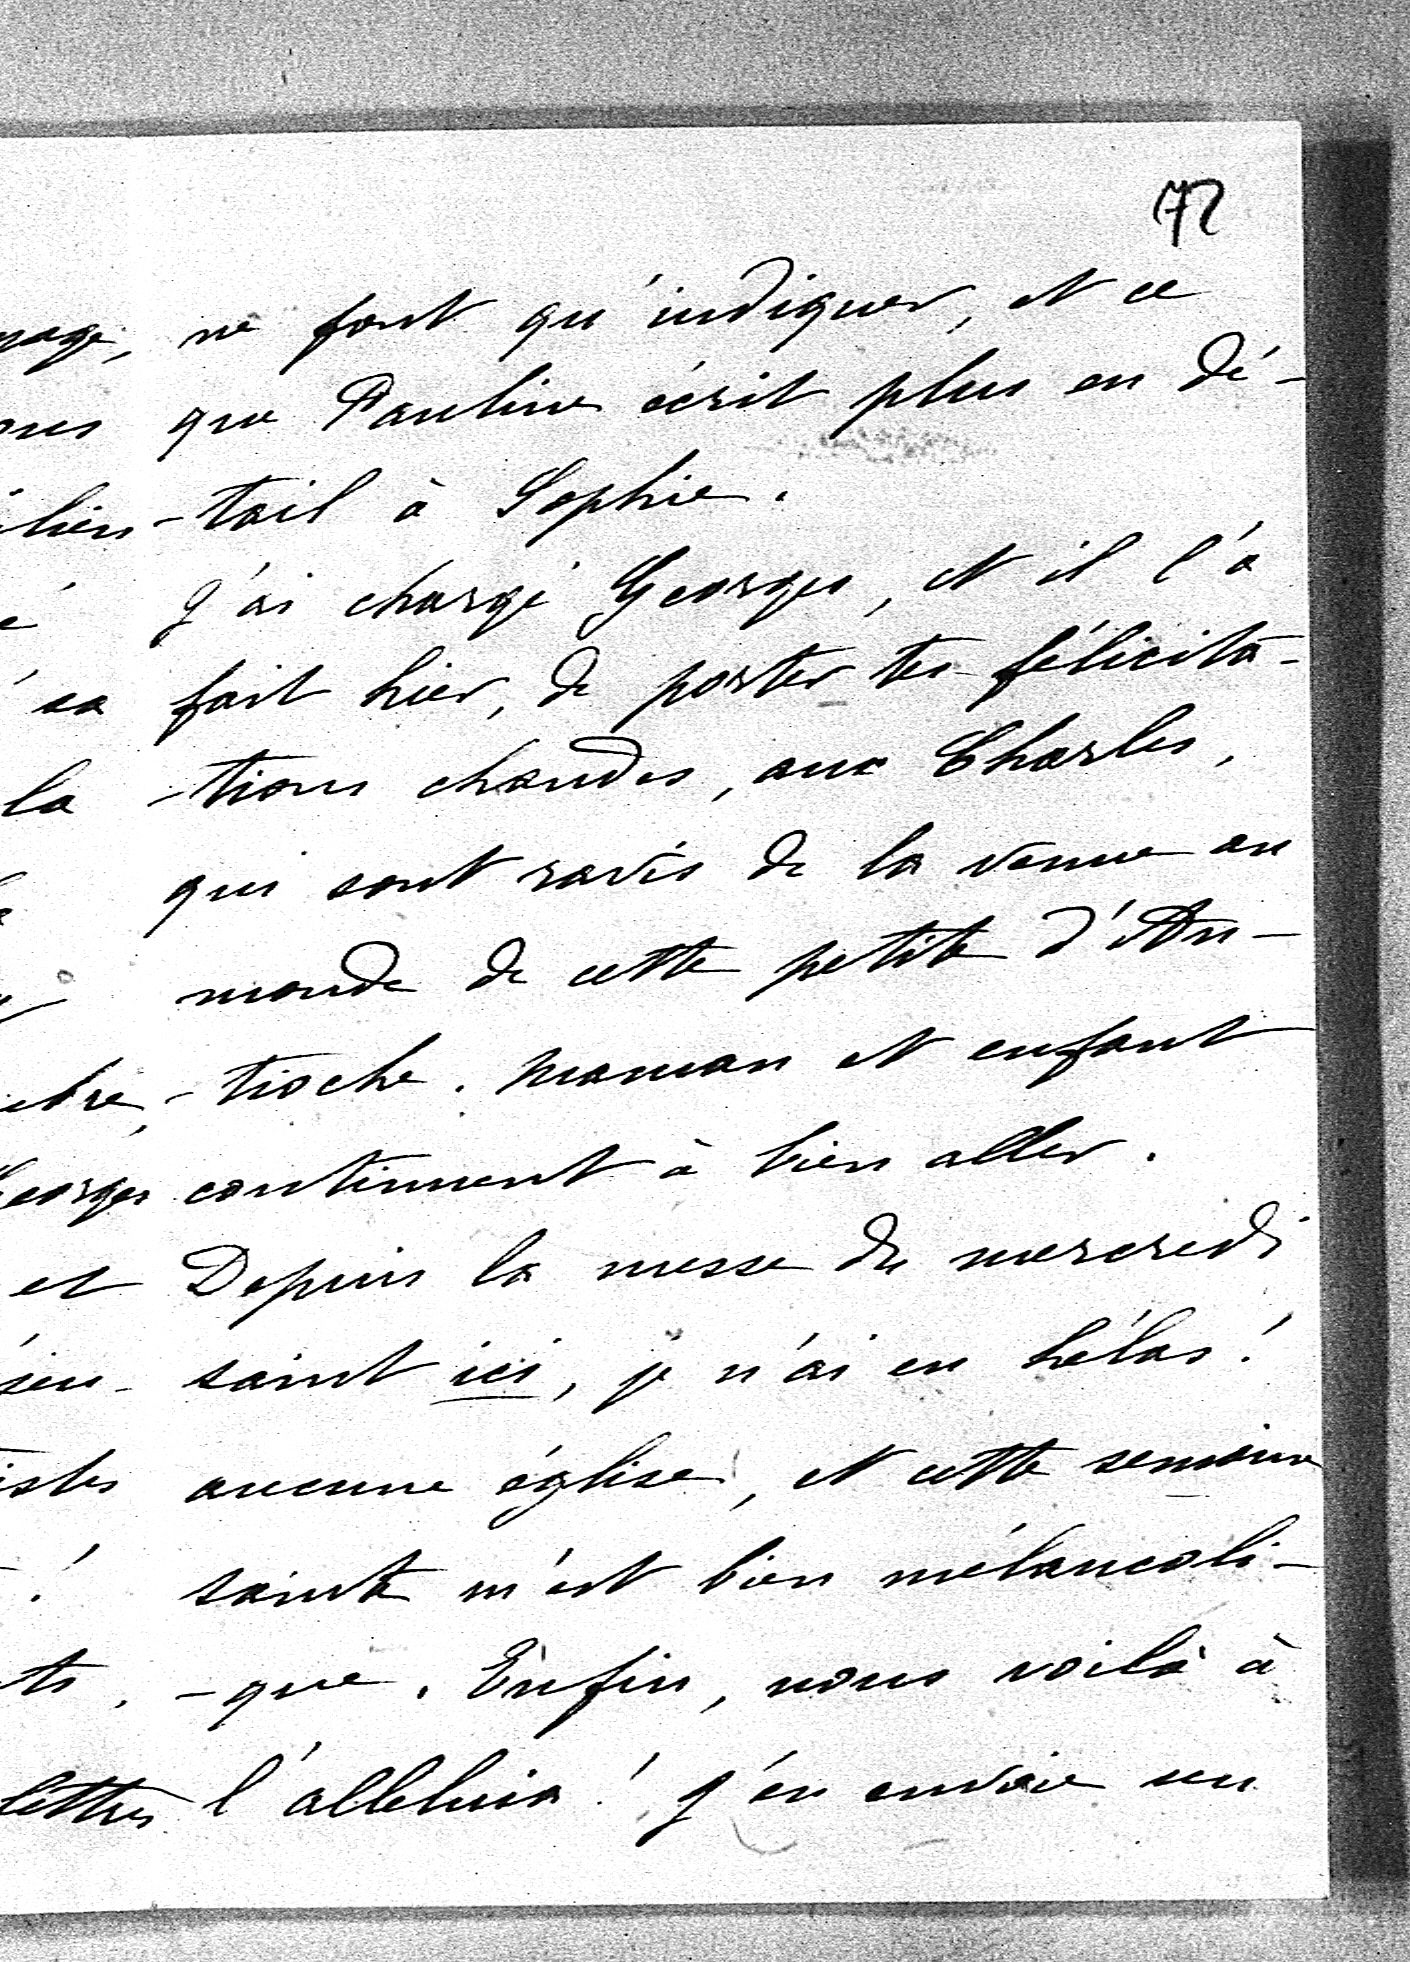 72
ne font qu'indiquer, et ce
que Pauline écrit plus en dé-
-tail à Sophie.
J'ai chargé Georges, et il l'a
fait hier, de porter tes félicita-
-tions chaudes, aux Charles,
qui sont ravis de la venue au
monde de cette petite d'An-
-tioche. Maman et enfant
continuent à bien aller.
Depuis la messe du mercredi
saint ici, je n'ai eu hélas!
aucune église, et cette semaine
sainte m'est bien mélancoli-
-que. Enfin, nous voilà à
l'alleluia! J'en envoie un
la
Georges
et
lettres